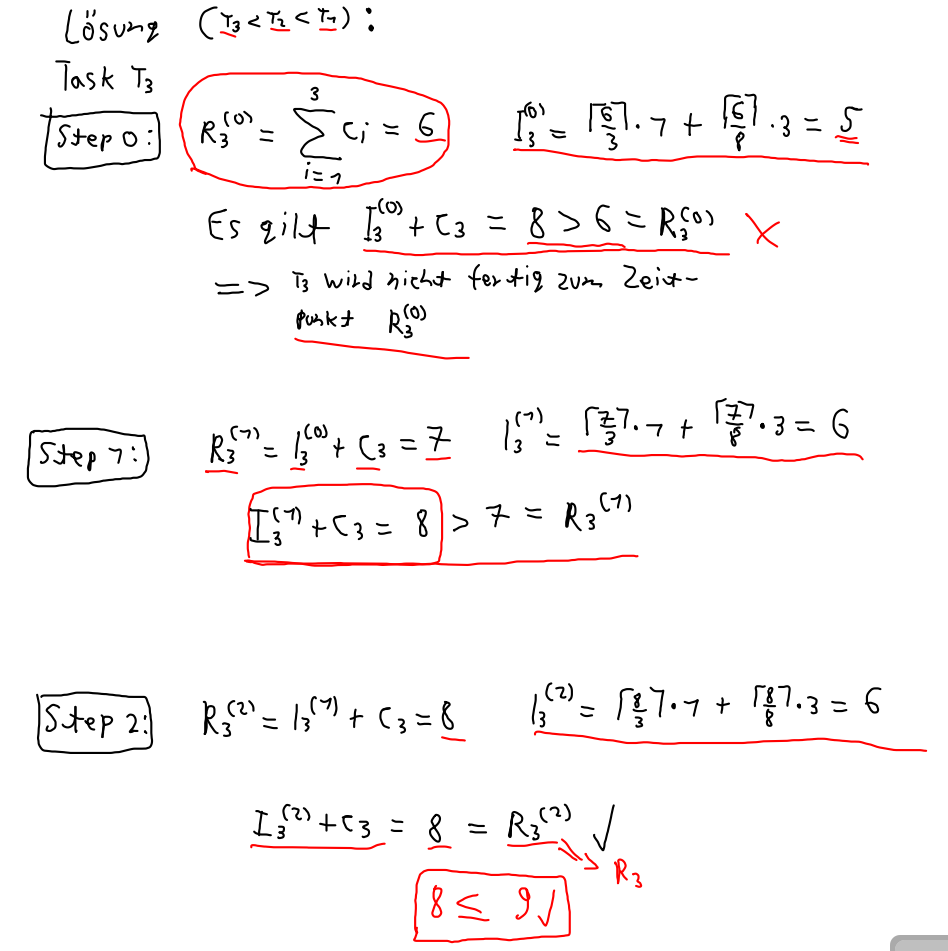 Lösung (T₃ < T₂ < T₁):
Task T₃
Step 0: R₃⁽⁰⁾ = ∑_{i=1}^{3} Cᵢ = 6 I₃⁽⁰⁾ = ⌈6/3⌉·1 + ⌈6/8⌉·3 = 5
Es gilt I₃⁽⁰⁾ + C₃ = 8 > 6 = R₃⁽⁰⁾ ✗
=> T₃ wird nicht fertig zum Zeit-
punkt R₃⁽⁰⁾
Step 1: R₃⁽¹⁾ = I₃⁽⁰⁾ + C₃ = 7 I₃⁽¹⁾ = ⌈7/3⌉·1 + ⌈7/8⌉·3 = 6
I₃⁽¹⁾ + C₃ = 8 > 7 = R₃⁽¹⁾
Step 2: R₃⁽²⁾ = I₃⁽¹⁾ + C₃ = 8 I₃⁽²⁾ = ⌈8/3⌉·1 + ⌈8/8⌉·3 = 6
I₃⁽²⁾ + C₃ = 8 = R₃⁽²⁾ ✓
R₃
8 ≤ 9 ✓